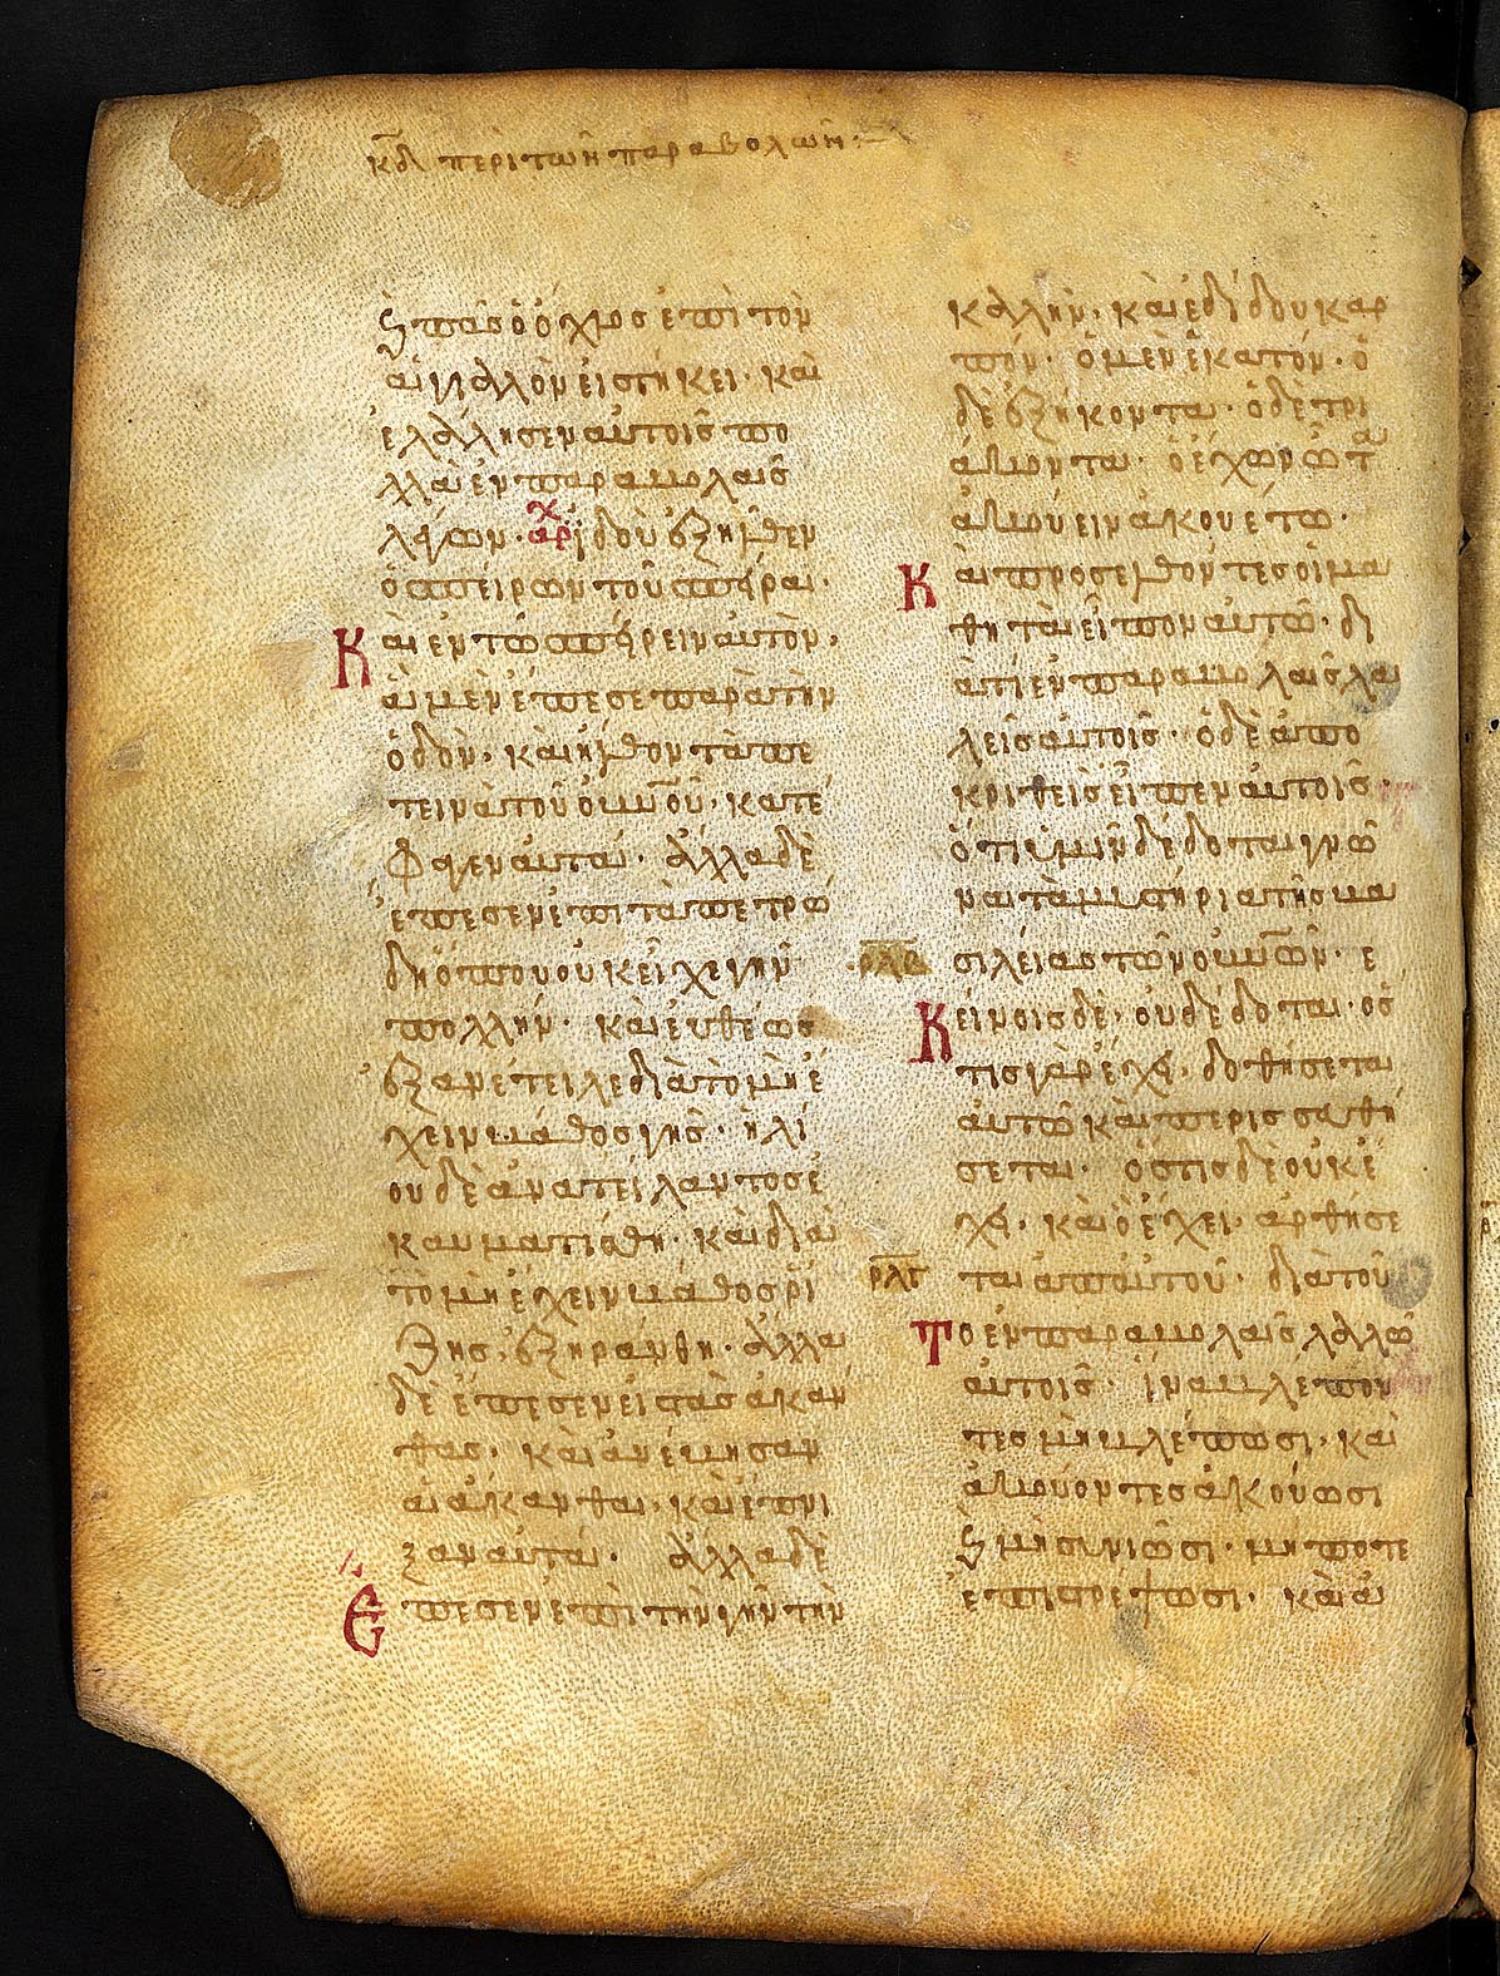 κδ περὶ τῶν παραβολῶν:
ϛ πᾶσ ὁ ὄχλοσ ἐπὶ τὸν
αἰγιαλὸν εἱστήκει· καὶ
ἐλάλησεν αὐτοῖσ πο
λλὰ ἐν παραβολαῖσ
λέγων· ἰδοὺ ἐξῆλθεν
ὁ σπείρων τοῦ σπεῖραι·
Κ αὶ ἐν τῶ σπείρειν αὐτὸν,
ἃ μὲν ἔπεσε παρὰ τὴν
ὁδὸν, καὶ ἦλθον τὰ πε
τεινὰ τοῦ οὐνοῦ, κατέ
φαγεν αὐτά· ἄλλα δὲ
ἔπεσεν ἐπὶ τὰ πετρώ
δη ὅπου οὐκ εἶχε γῆν
πολλήν· καὶ εὐθέωσ
ἐξανέτειλε διὰ τὸ μὴ ἔ
χειν βάθοσ γῆσ· ἡλί
ου δὲ ἀνατείλαντοσ ἐ
καυματίσθη· καὶ διὰ
τὸ μὴ ἔχειν βάθοσ ῥί
ζησ, ἐξηράνθη· ἄλλα
δὲ ἔπεσεν εἰσ τὰσ ἀκάν
θασ, καὶ ἀνέβησαν
αἱ ἄκανθαι, καὶ ἔπνι
ξαν αὐτά· ἄλλα δὲ
Ἔ πεσεν ἐπὶ τὴν γῆν τὴν
καλὴν, καὶ ἐδίδου καρ
πόν· ὁ μὲν ἑκατόν· ὁ
δὲ ἑξήκοντα· ὁ δὲ τρι
άκοντα· ὁ ἔχων ὦτα
ἀκούειν ἀκουέτω·
Κ αὶ προσελθόντεσ οἱ μα
θηταὶ εἶπον αὐτῶ· δι
ατί ἐν παραβολαῖσ λα
λεῖσ αὐτοῖσ· ὁ δὲ ἀπο
κριθεὶσ εἶπεν αὐτοῖσ·
ὅτι ὑμῖν δέδοται γνῶ
ναι τὰ μυστήρια τῆσ βα
ρλβ σιλείασ τῶν οὐνῶν· ἐ
Κ είνοισ δὲ, οὐ δέδοται· ὅσ
τισ γὰρ ἔχει, δοθήσεται
αὐτῶ καὶ περισσευθή
σεται· ὅστισ δὲ οὐκ ἔ
χει, καὶ ὃ ἔχει, ἀρθήσε
ρλγ ται ἀπ' αὐτοῦ· διὰ τοῦ
Τ ο ἐν παραβολαῖσ λαλῶ
αὐτοῖσ· ἵνα βλέπον
τεσ μὴ βλέπωσι, καὶ
ἀκούοντεσ ἀκούωσι
ϛ μὴ συνιῶσι· μήποτε
ἐπιστρέψωσι· καὶ ἀ